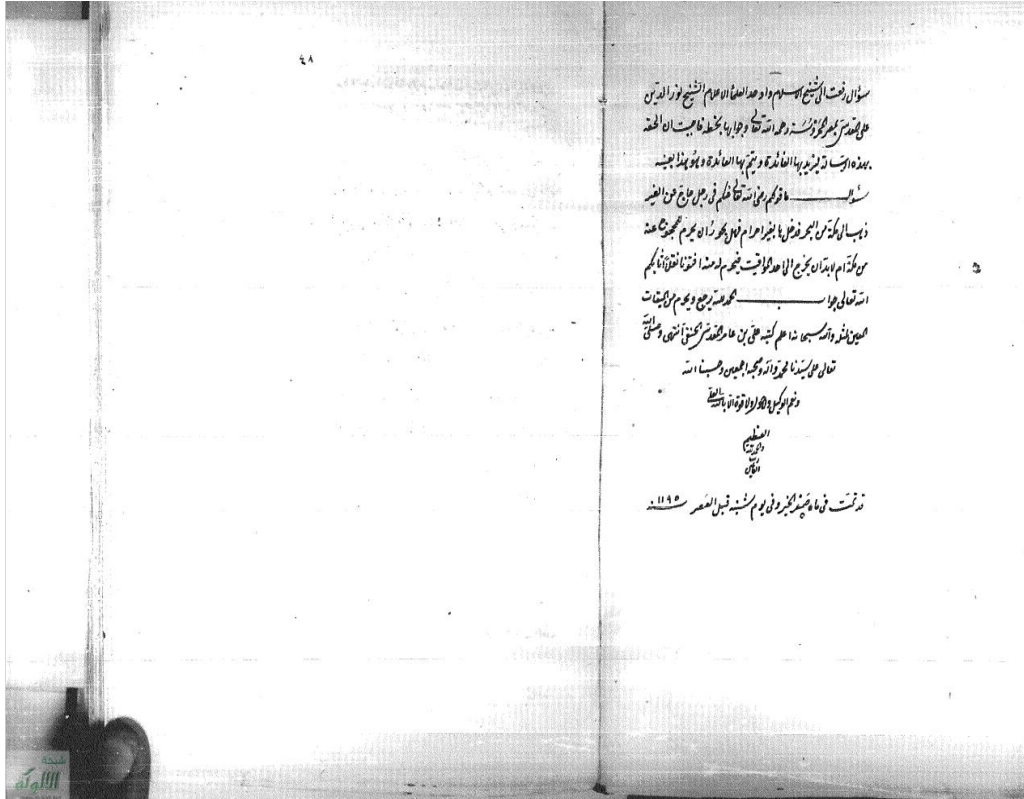 سؤال رفعت الى شيخ الاسلام واوحد العلماء الاعلام الشيخ نور الدين
على المقدسى بمصر المحروسة رحمه الله تعالى وجوابها بخطه فاحببت ان الحقه
بهذه الرسالة ليزيد بها الفائدة ويتم بها العائدة وهو هذا بعينه
سؤال ما قولكم رضى الله تعالى عنكم فى رجل حاج عن الغير
ذهب الى مكة من البحر فدخلها بغير احرام فهل يجوز ان يحرم للمحجوج عنه
من مكة ام لا بد ان يخرج الى احد المواقيت فيحرم له منه افتونا نقلا اثابكم
الله تعالى جواب الحمد لله يرجع ويحرم من الميقات
المعين لمثله والله سبحانه اعلم كتبه على بن غانم المقدسى الحنفى انتهى وصلى الله
تعالى على سيدنا محمد واله وصحبه اجمعين وحسبنا الله
ونعم الوكيل ولا حول ولا قوة الا بالله العلى
العظيم
والحمد لله
رب
العالمين
قد تمت فى ماه صفر الخير وفى يوم شنبه قبل العصر سنه ١١٩٥
٤٨
شبكة
الألوكة